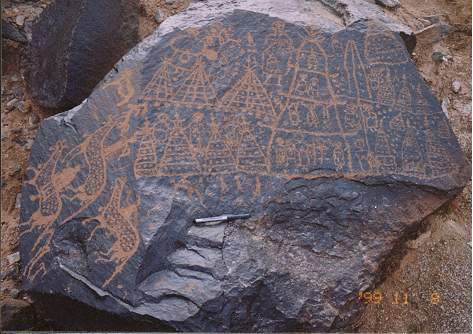 '99 11 8